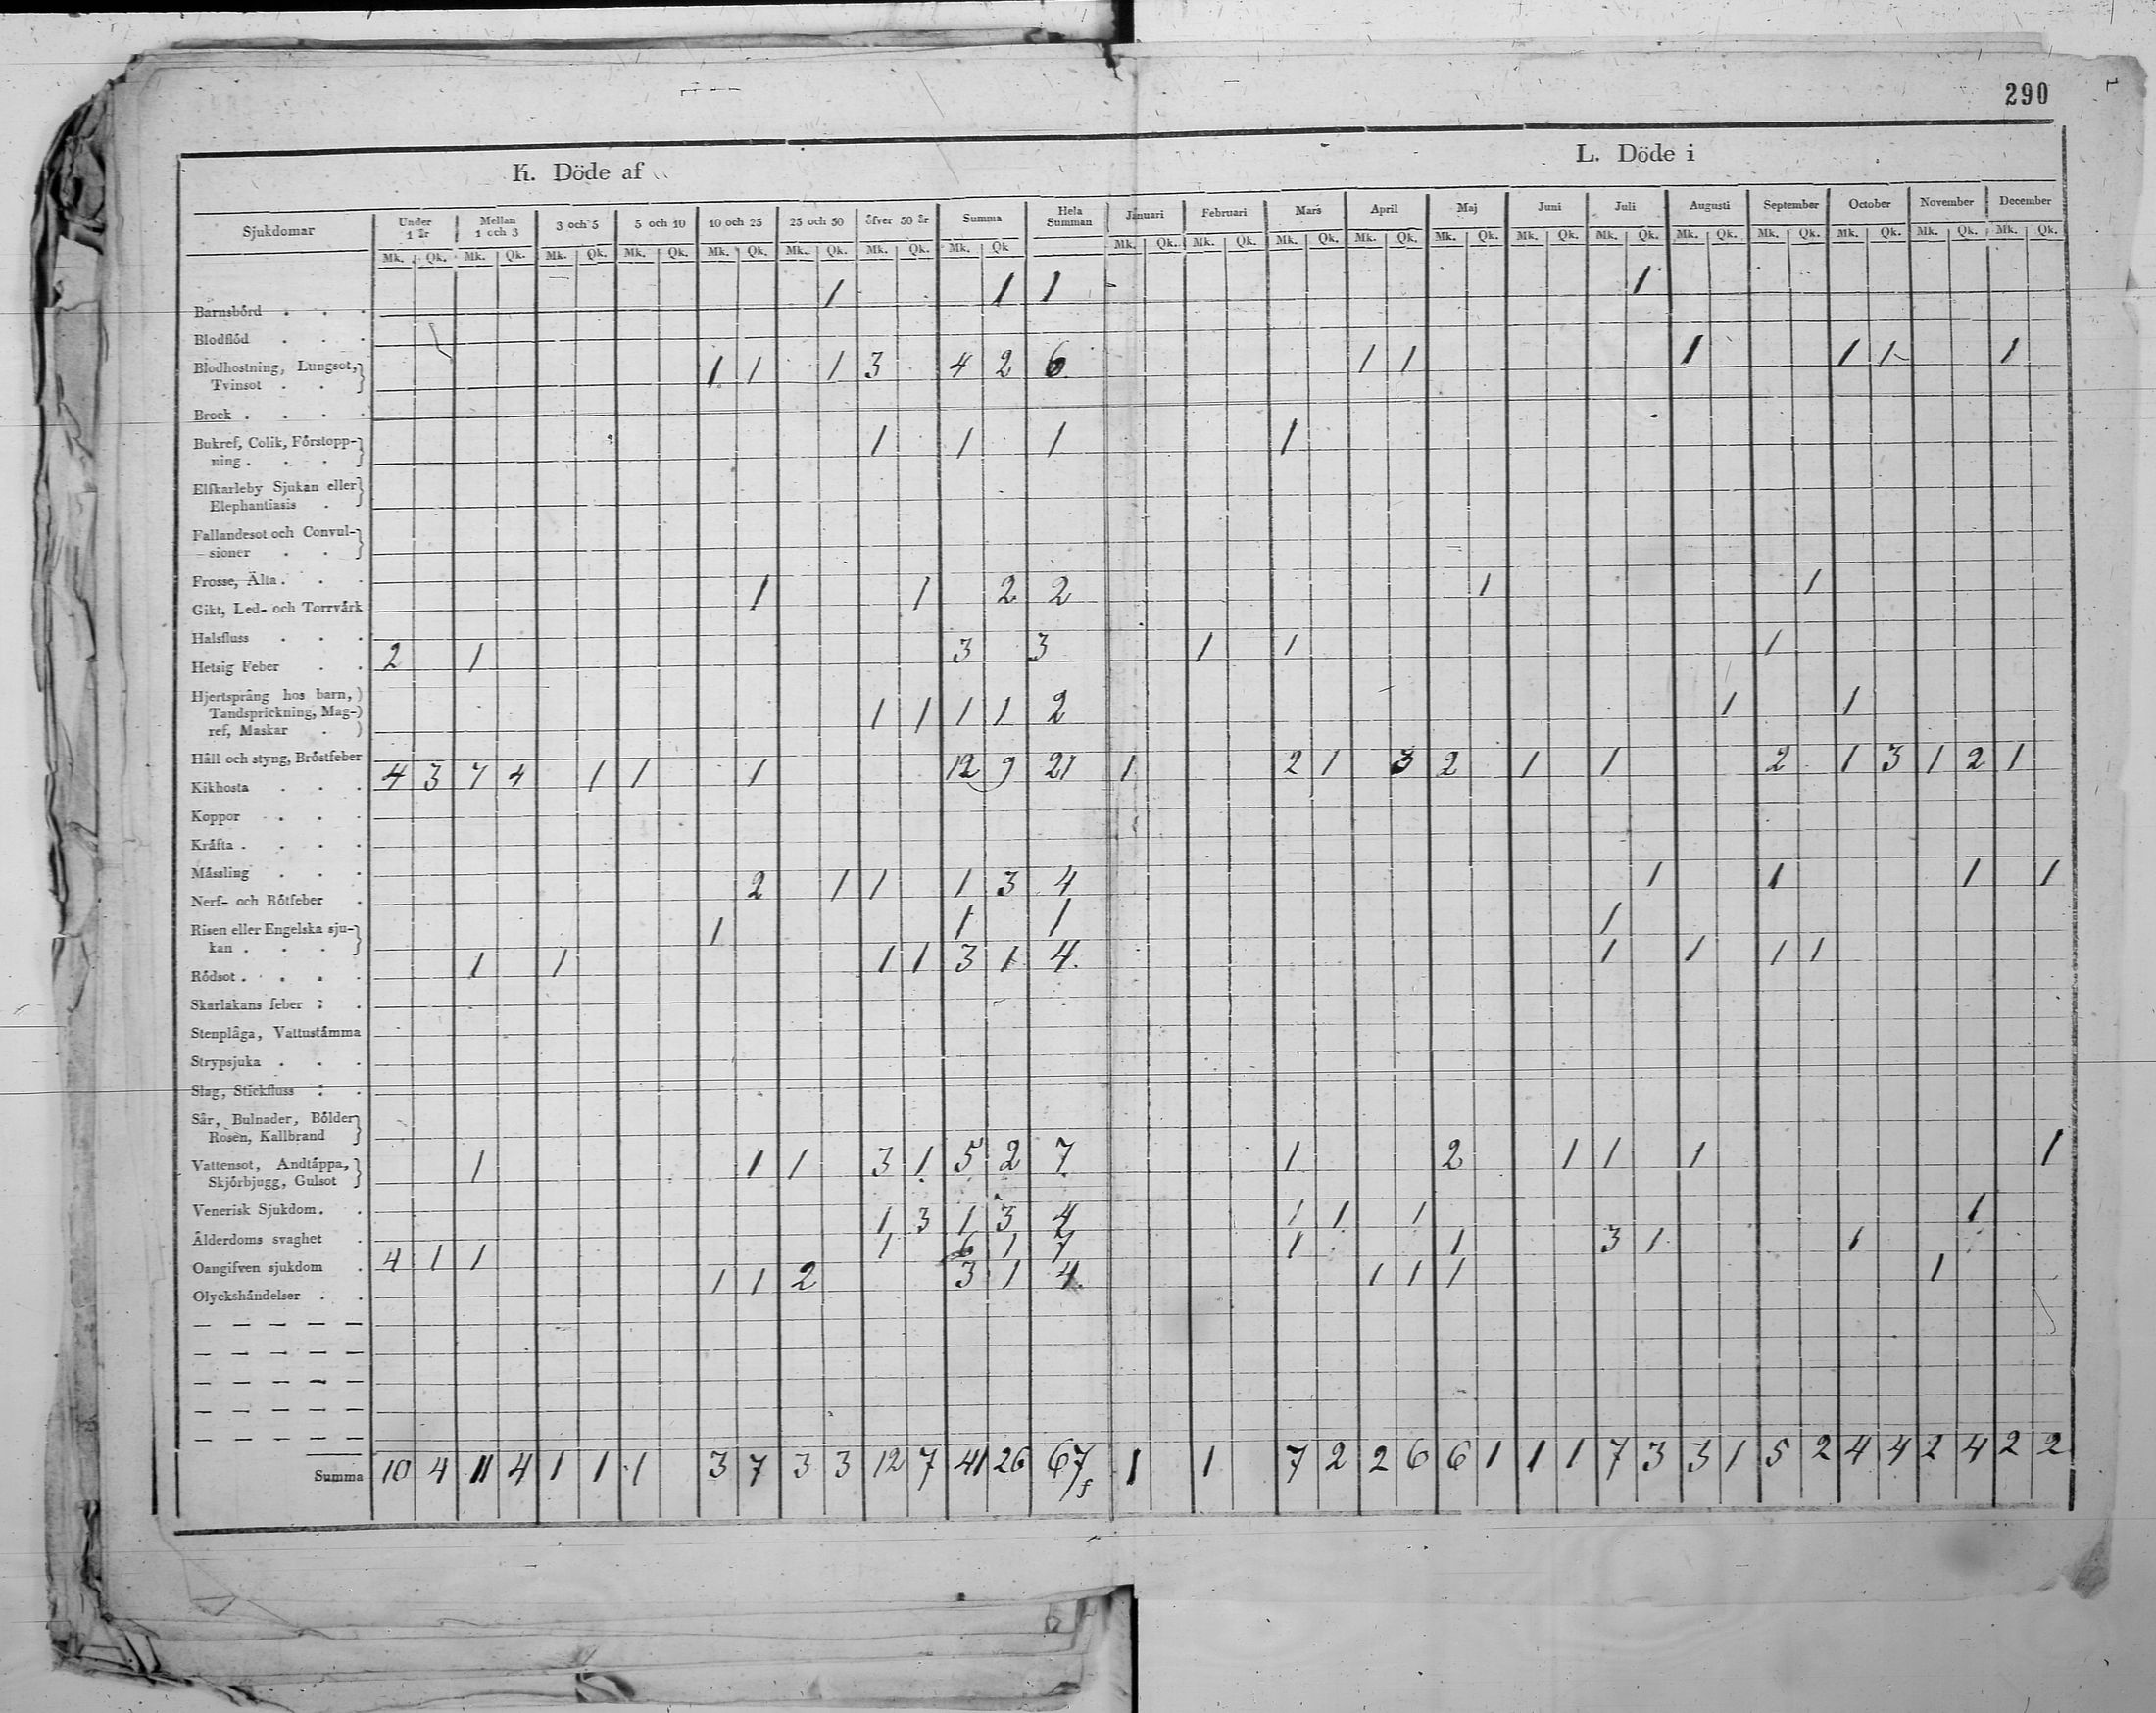 290
K. Döde af
L. Döde i
Sjukdomar Under 1 år Mellan 1 och 3 3 och 5 5 och 10 10 och 25 25 och 50 öfver 50 år Summa Hela Summan Januari Februari Mars April Maj Juni Juli Augusti September October November December
Mk. Qk. Mk. Qk. Mk. Qk. Mk. Qk. Mk. Qk. Mk. Qk. Mk. Qk. Mk. Qk Mk. Qk. Mk. Qk. Mk. Qk. Mk. Qk. Mk. Qk. Mk. Qk. Mk. Qk. Mk. Qk. Mk. Qk. Mk. Qk. Mk. Qk. Mk. Qk.
Barnsbörd . . . 1 1 1 1
Blodflöd . . .
Blodhostning, Lungsot,
Tvinsot . . 1 1 1 3 4 2 6 1 1 1 1 1 1
Brock . . . .
Bukref, Colik, Förstopp-
ning . . . 1 1 1 1
Elfkarleby Sjukan eller
Elephantiasis .
Fallandesot och Convul-
sioner . .
Frosse, Älta . . .
Gikt, Led- och Torrvärk 1 1 2 2 1 1
Halsfluss . . .
Hetsig Feber . . 2 1 3 3 1 1 1
Hjertsprång hos barn,
Tandsprickning, Mag-
ref, Maskar . 1 1 1 1 2 1 1
Håll och styng, Bröstfeber
Kikhosta . . . 4 3 7 4 1 1 1 12 9 21 1 2 1 3 2 1 1 2 1 3 1 2 1
Koppor . . .
Kräfta . . . .
Mässling . . .
Nerf- och Rötfeber . 2 1 1 1 3 4 1 1 1 1
Risen eller Engelska sju-
kan . . . 1 1 1 1
Rödsot . . . . 1 1 1 1 3 1 4. 1 1 1 1
Skarlakans feber : .
Stenplåga, Vattustämma
Strypsjuka . . .
Slag, Stickfluss : .
Sår, Bulnader, Bölder
Rosen, Kallbrand
Vattensot, Andtäppa,
Skjörbjugg, Gulsot 1 1 1 3 1 5 2 7 1 2 1 1 1 1
Venerisk Sjukdom . .
Ålderdoms svaghet . 1 3 1 3 4 1 1 1 1
Oangifven sjukdom . 4 1 1 1 6 1 7 1 1 3 1 1
Olyckshändelser . . 1 1 2 3 1 4. 1 1 1 1
Summa 10 4 11 4 1 1 1 3 7 3 3 12 7 41 26 67 1 1 7 2 2 6 6 1 1 1 7 3 3 1 5 2 4 4 2 4 2 2